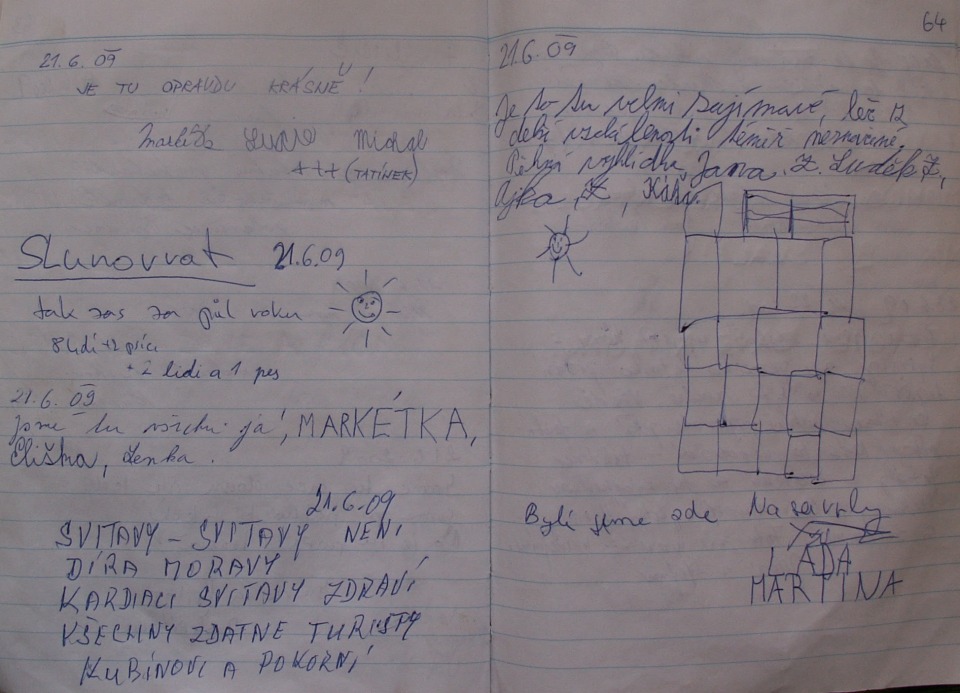 21.6.09
JE TU OPRAVDU KRÁSNĚ!
Markét Lucie Michal
+++ (TATÍNEK)
Slunovrat 21.6.09
tak zas za půl roku
8 lidí +
+ 2 lidi a 1 pes
21.6.09
jsme tu všichni já, MARKÉTKA,
Eliška, Lenka.
21.6.09
SVITAVY - SVITAVY NENÍ
DÍRA MORAVY
KARDIACI SVITAVY ZDRAVÍ
VŠECHNY ZDATNE TURISTY
KUBÍNOVI A POKORNÍ
64
21.6.09
Je to tu velmi zajímavé, leč z
dolní vzdálenosti téměř neznačené.
Pěkná vyhlídka, Jana Z. Luděk Z.,
Ajka, Z, Káťa.
Byli jsme zde Nasavrky
LÁĎA
MARTINA